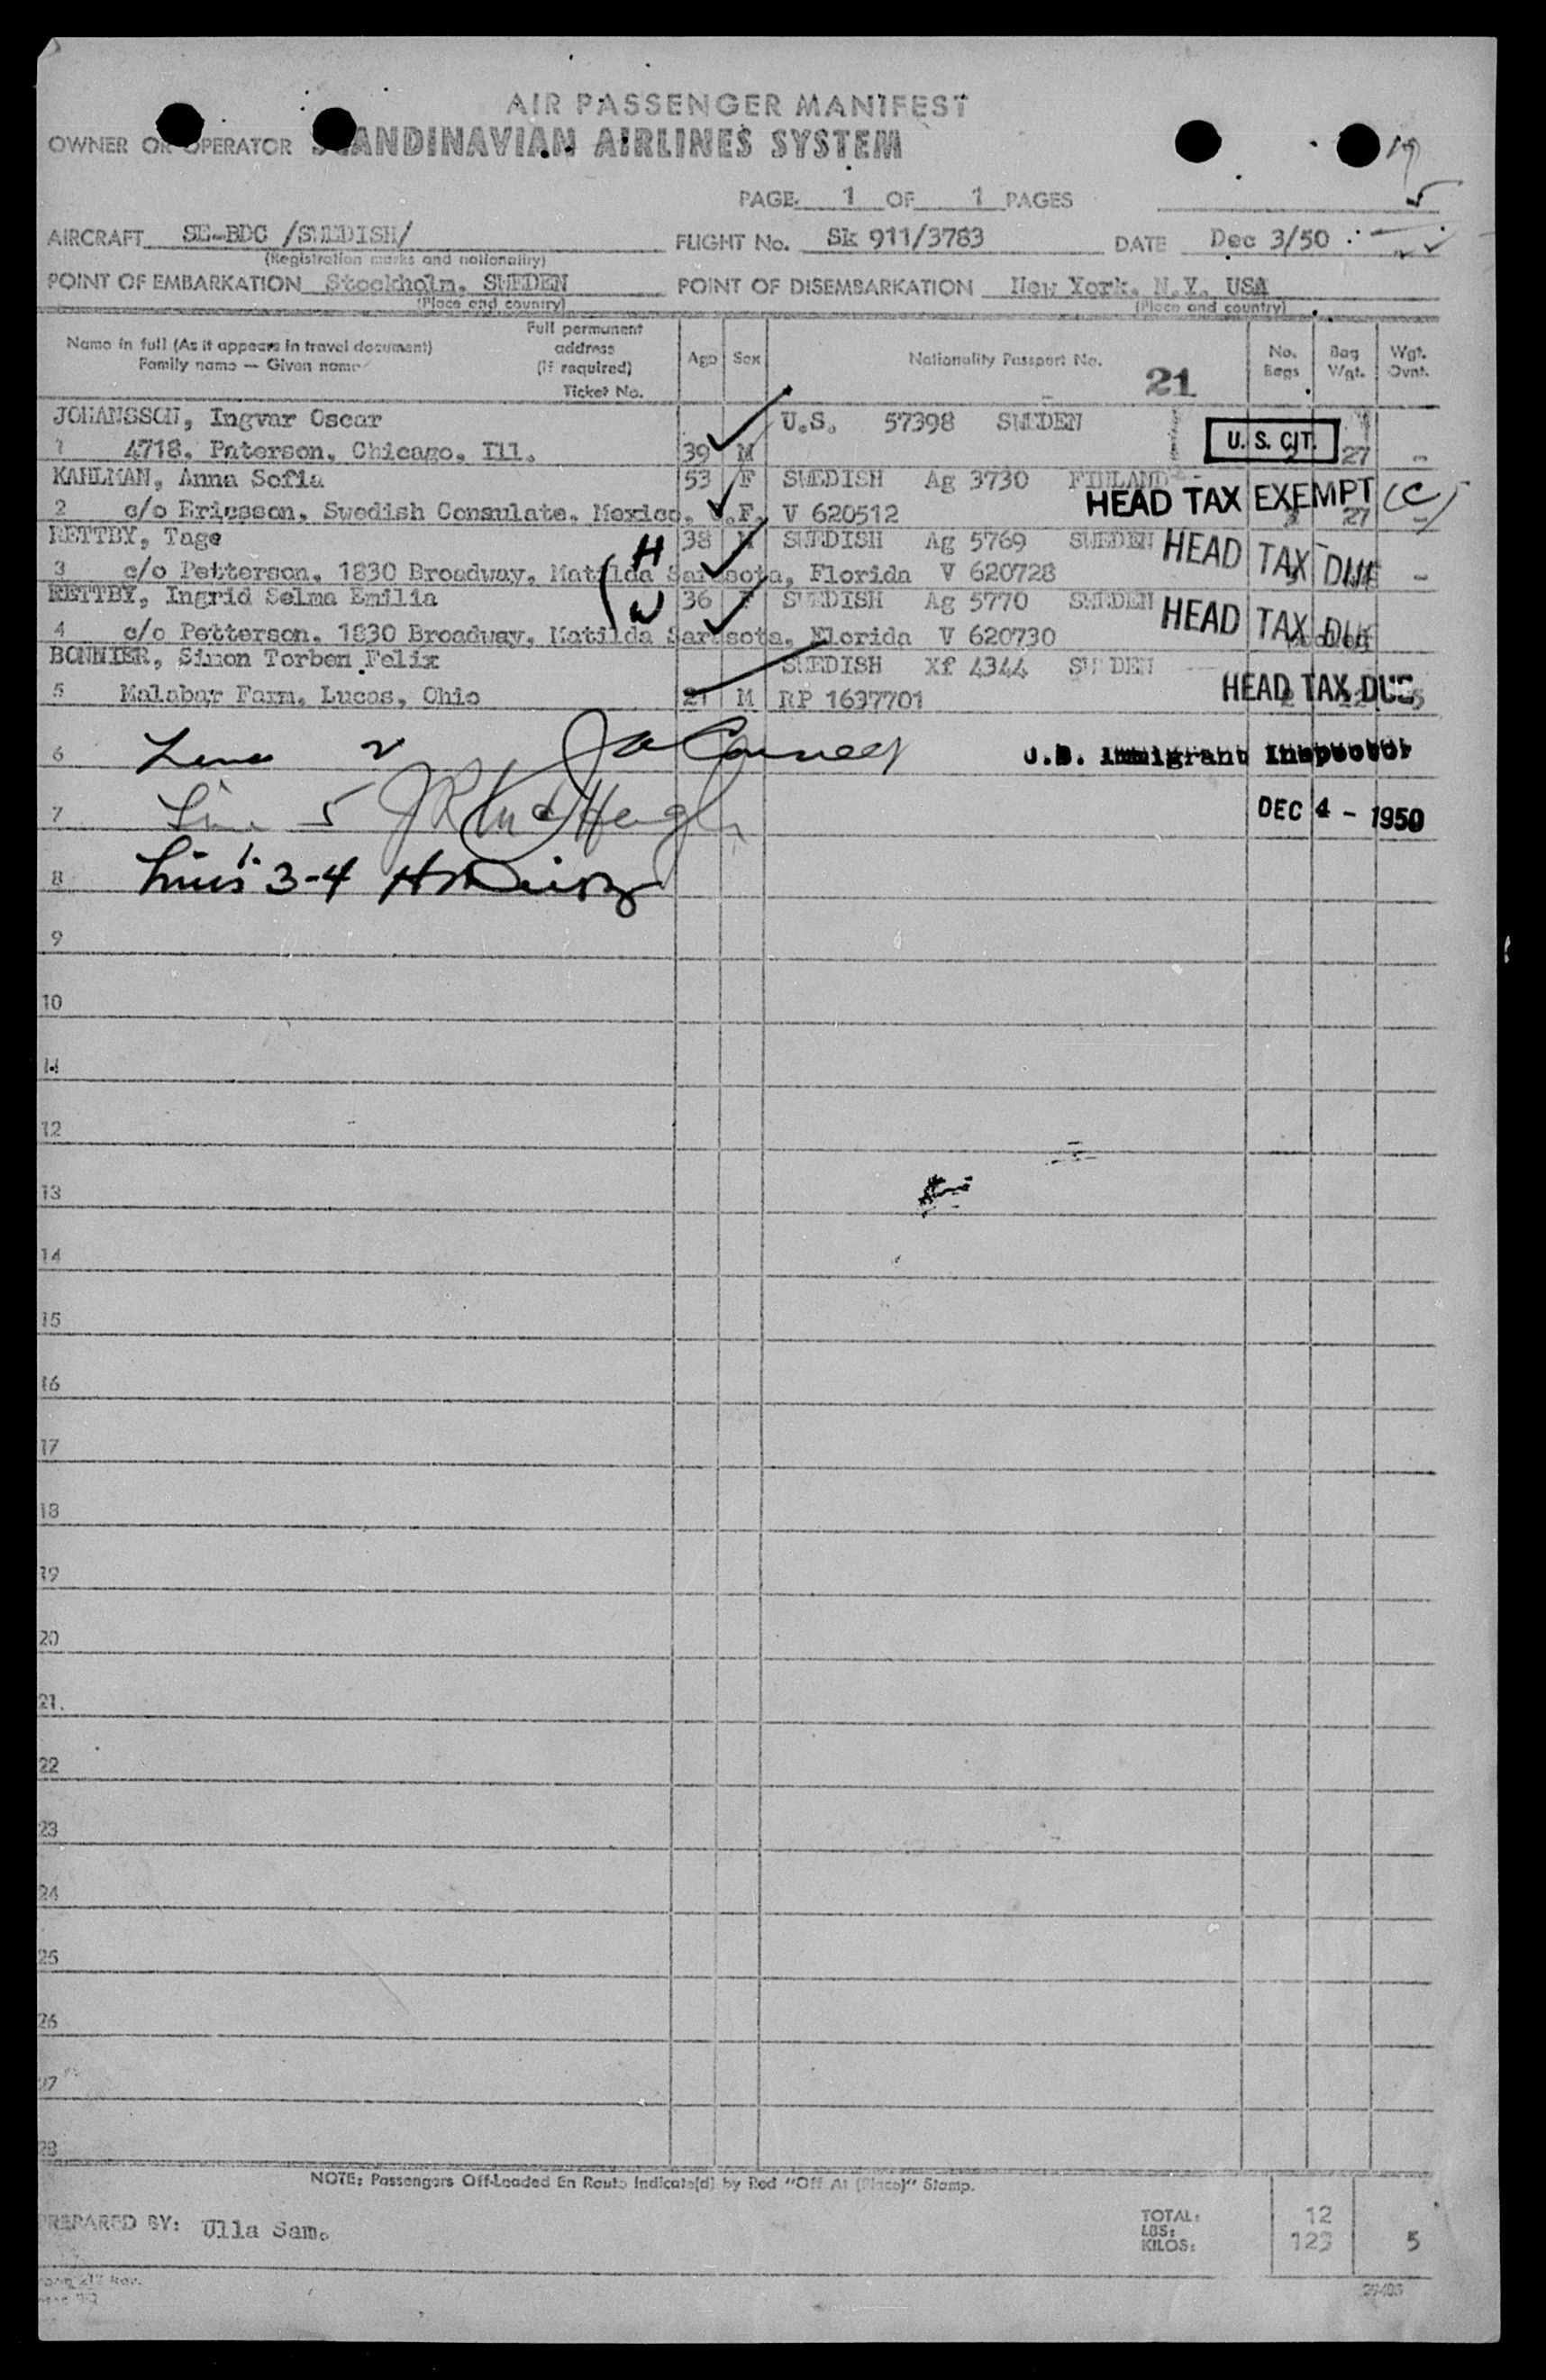 AIR PASSENGER MANIFEST
OWNER OR OPERATOR SCANDINAVIAN AIRLINES SYSTEM
19
PAGE 1 OF 1 PAGES
5
AIRCRAFT SE-BDC /SWEDISH/ FLIGHT No. Sk 911/3783 DATE Dec 3/50
(Registration marks and nationality)
POINT OF EMBARKATION Stockholm, SWEDEN POINT OF DISEMBARKATION New York, N.Y. USA
(Place and country) (Place and country)
Name in full (As it appears in travel document) Family name — Given name Full permanent address (if required) Ticket No. Age Sex Nationality Passport No. No. Bags Bag Wgt. Wgt. Ovnt.
21
JOHANSSON, Ingvar Oscar U.S. 57398 SWEDEN U. S. CIT.
1 4718, Paterson, Chicago, Ill. 39 M 27 -
KAHLMAN, Anna Sofia 53 F SWEDISH Ag 3730 FINLAND HEAD TAX EXEMPT (C)
2 c/o Ericsson, Swedish Consulate, Mexico, D.F. V 620512 27 -
RETTBY, Tage H 38 M SWEDISH Ag 5769 SWEDEN HEAD TAX DUE
3 c/o Petterson, 1830 Broadway, Matilda Sarasota, Florida V 620728 -
RETTBY, Ingrid Selma Emilia W 36 F SWEDISH Ag 5770 SWEDEN HEAD TAX DUE
4 c/o Petterson, 1830 Broadway, Matilda Sarasota, Florida V 620730 pooled
BONNIER, Simon Torben Felix SWEDISH Xf 4344 SWEDEN
5 Malabar Farm, Lucas, Ohio 21 M RP 1637701 HEAD TAX DUE 5
6 Line 2 U.S. Immigrant Inspector
7 Line 5 DEC 4 - 1950
8 Lines 3-4
9
10
11
12
13
14
15
16
17
18
19
20
21
22
23
24
25
26
27
28
NOTE: Passengers Off-Loaded En Route Indicate(d) by Red "Off At (Place)" Stamp.
PREPARED BY: Ulla Sam. TOTAL: 12
LBS:
KILOS: 123 5